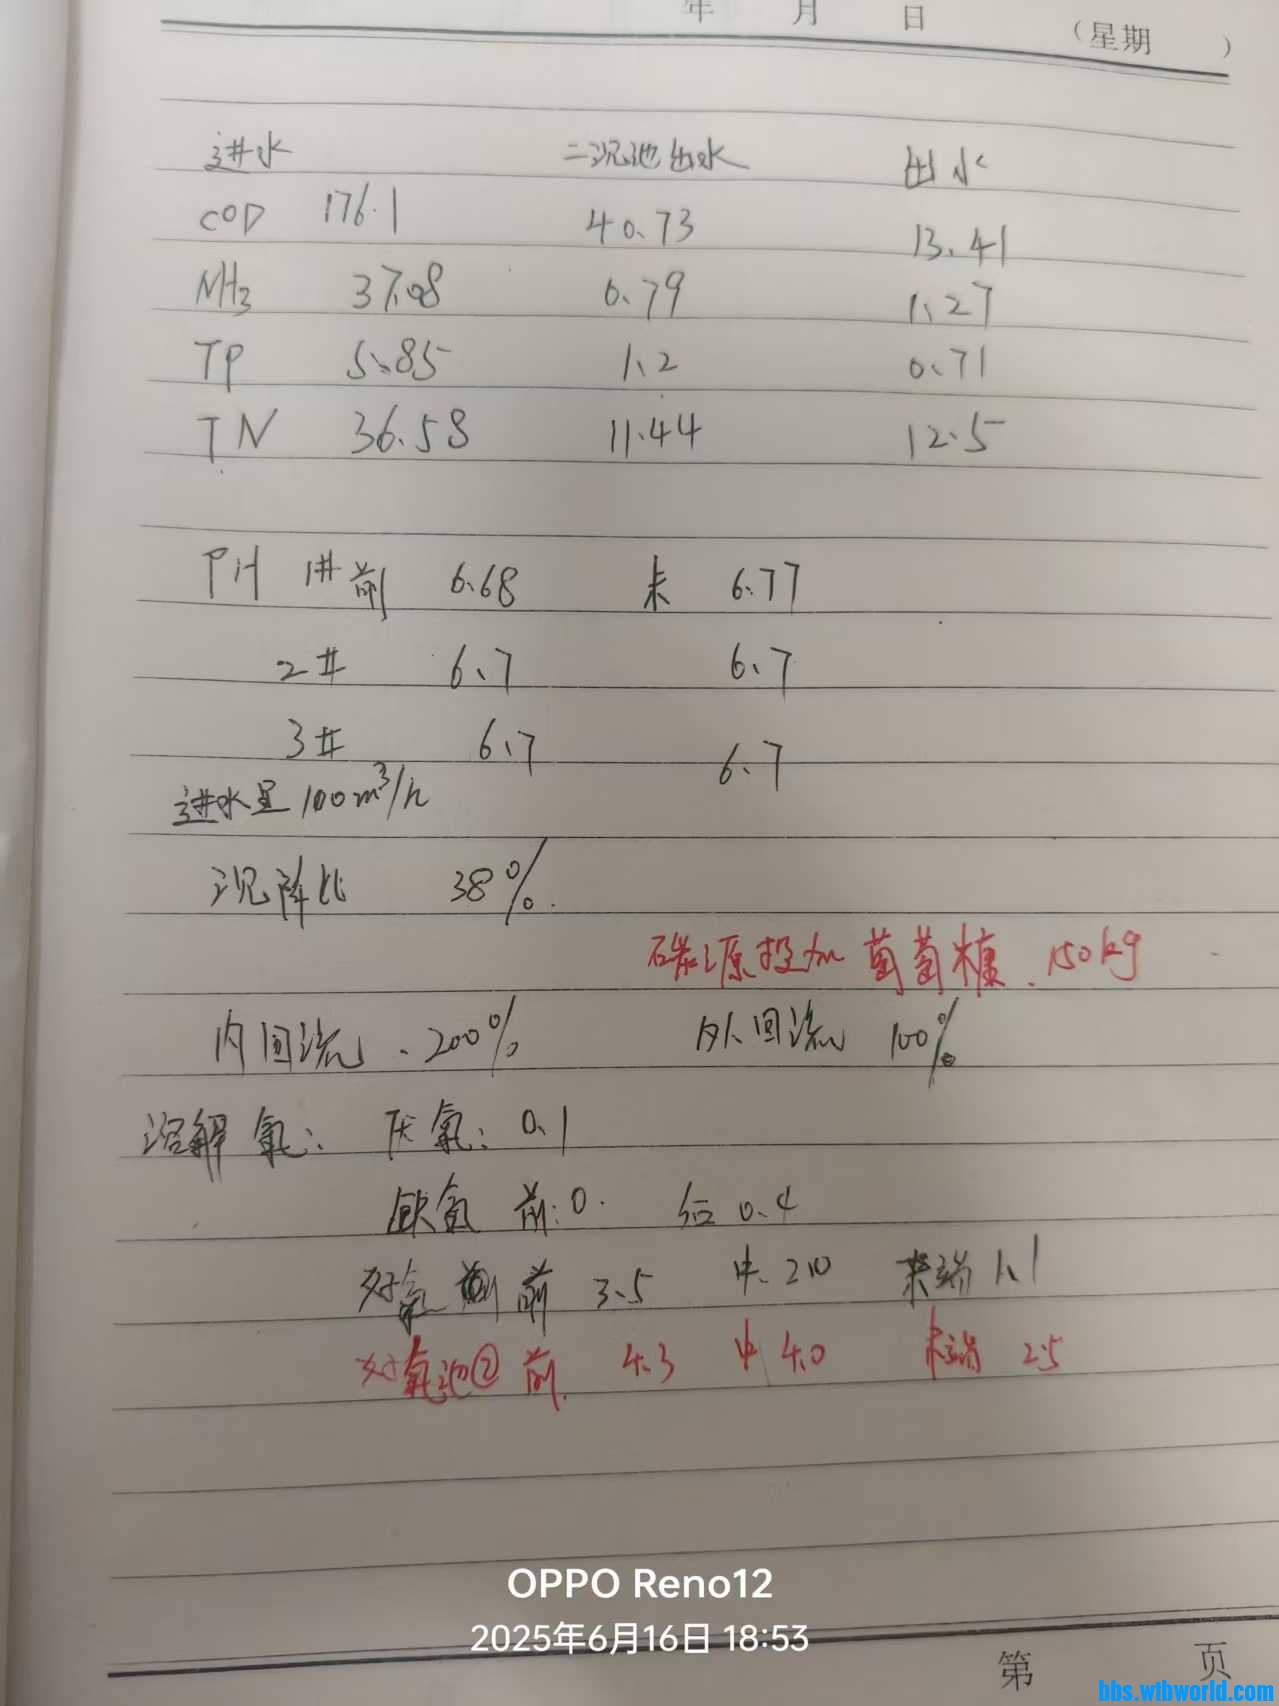 年 月 日 （星期 ）
进水 二沉池出水 出水
COD 176.1 40.73 13.41
NH3 37.08 0.79 1.27
TP 5.85 1.2 0.71
TN 36.58 11.44 12.5
PH 1# 前 6.68 末 6.77
2# 6.7 6.7
3# 6.7 6.7
进水量 100m³/h
沉降比 38%.
碳源投加 葡萄糖. 150kg
内回流. 200% 外回流 100%
溶解氧: 厌氧: 0.1
缺氧 前: 0. 后 0.4
好氧 前 3.5 中. 2.0 末端 1.1
好氧池② 前. 4.3 中 4.0 末端 2.5
OPPO Reno12
2025年6月16日 18:53
第 页
bbs.wtbworld.com